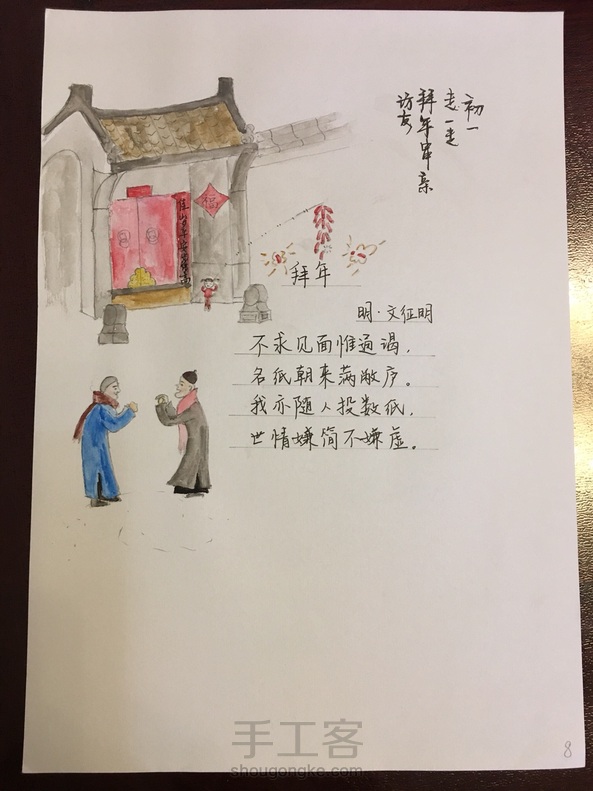 初一
走一走
拜年串亲
访友
福
拜年
明·文征明
不求见面惟通谒，
名纸朝来满敝庐。
我亦随人投数纸，
世情嫌简不嫌虚。
手工客
shougongke.com
8